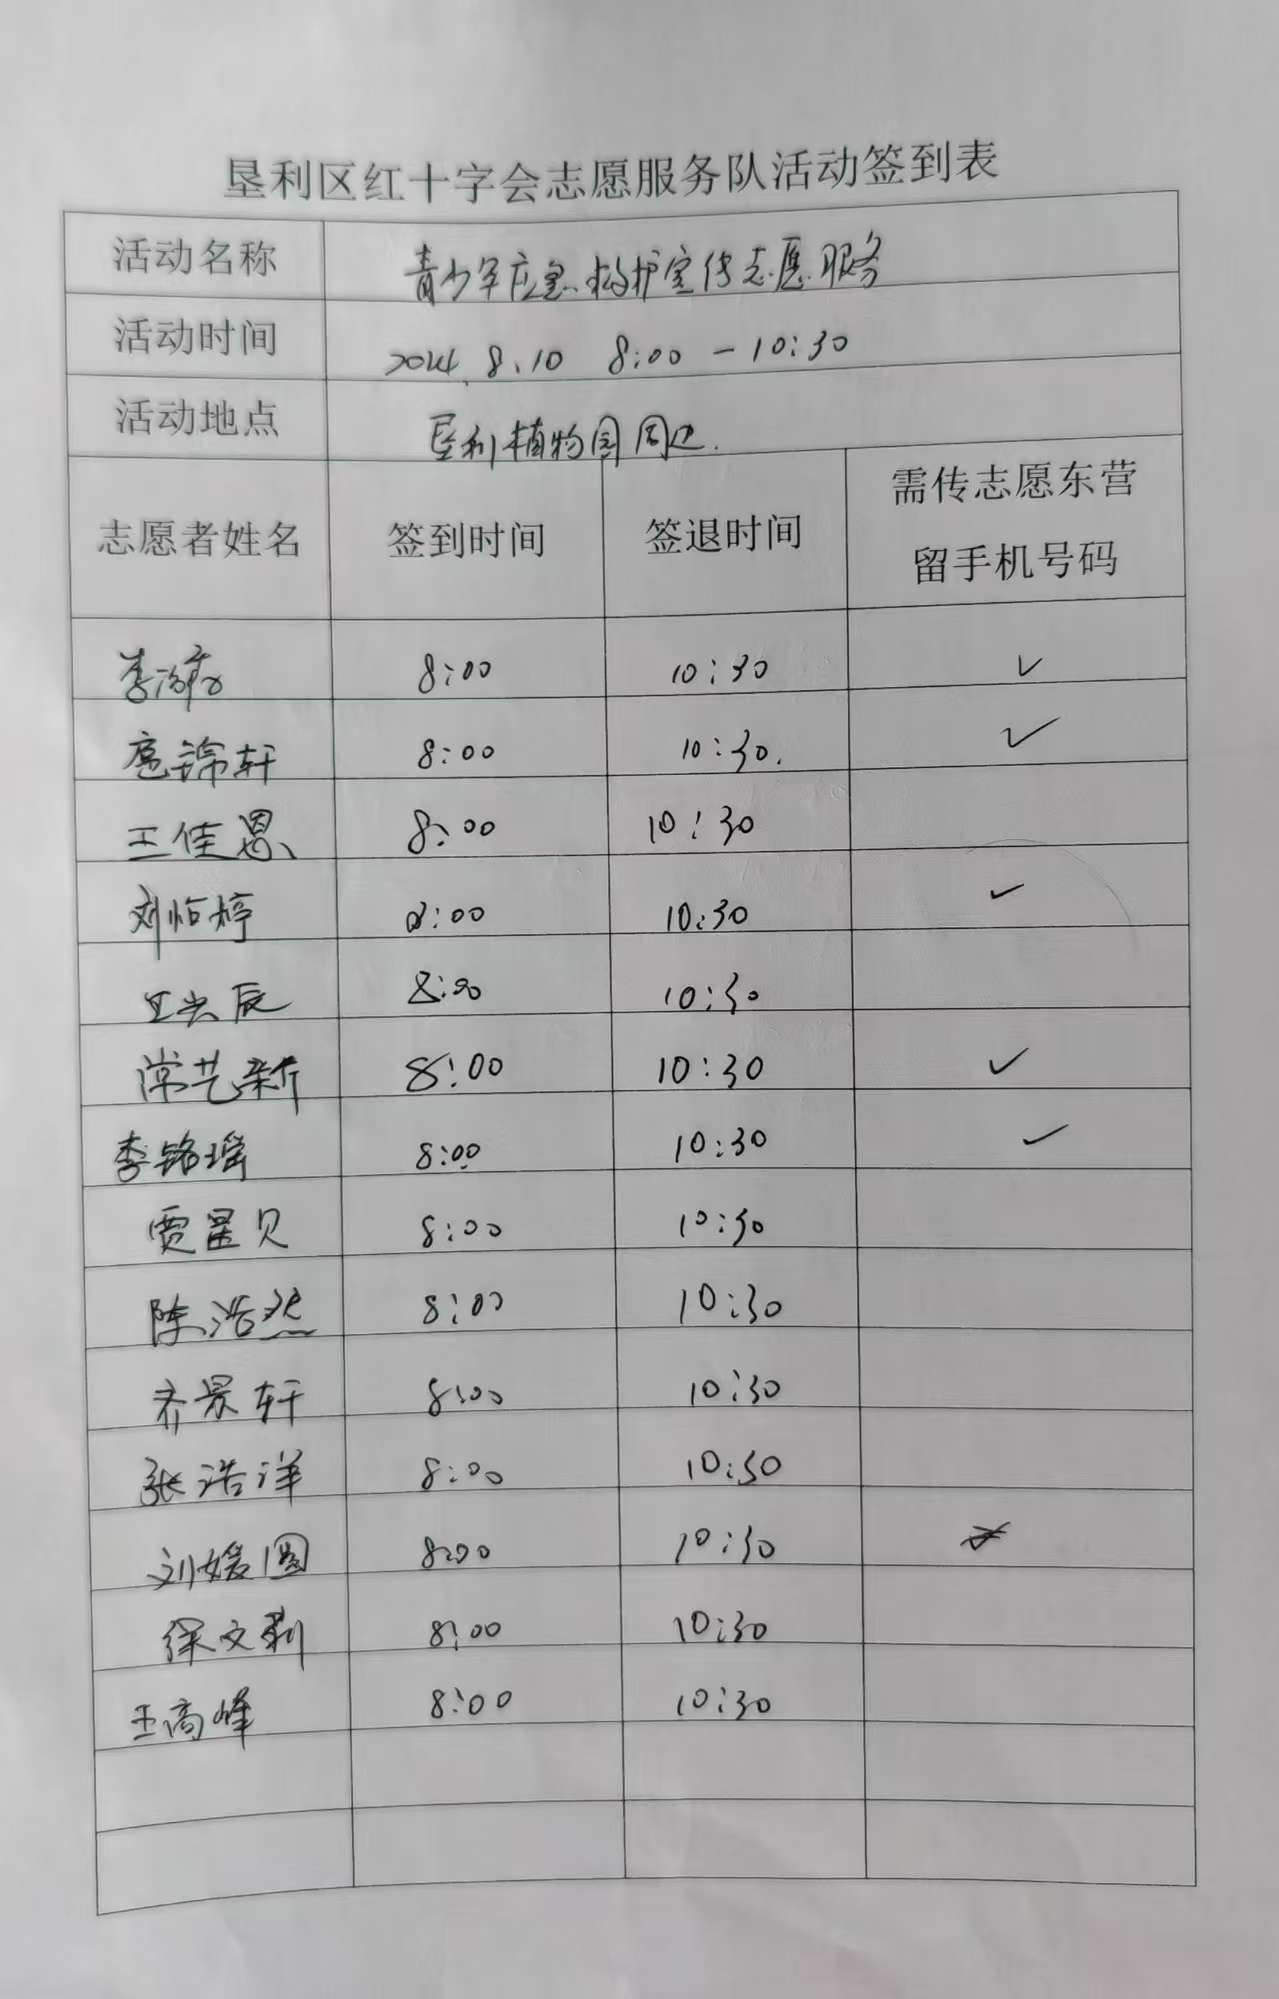 垦利区红十字会志愿服务队活动签到表
活动名称 青少年应急救护宣传志愿服务
活动时间 2024.8.10 8:00-10:30
活动地点 垦利植物园周边.
志愿者姓名 签到时间 签退时间 需传志愿东营
留手机号码
李 8:00 10:30 ✓
扈锦轩 8:00 10:30. ✓
王佳恩 8:00 10:30
刘怡婷 8:00 10:30 ✓
王 辰 8:00 10:30
常艺新 8:00 10:30 ✓
李铭瑶 8:00 10:30 ✓
贾星贝 8:00 10:30
陈浩然 8:00 10:30
齐景轩 8:00 10:30
张浩洋 8:00 10:30
刘媛圆 8:00 10:30
徐文利 8:00 10:30
王高峰 8:00 10:30